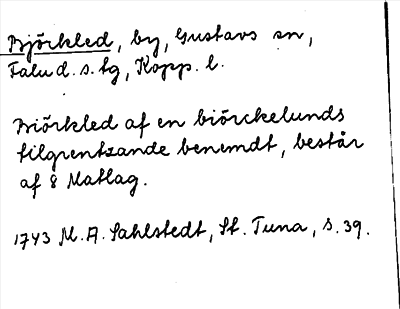 Björkled, by, Gustavs sn,
Falu d. s. tg, Kopp. l.
Biörkled af en biörckelunds
tilgrentzande benemdt, består
af 8 Matlag.
1743 M. A. Sahlstedt, St. Tuna, s. 39.